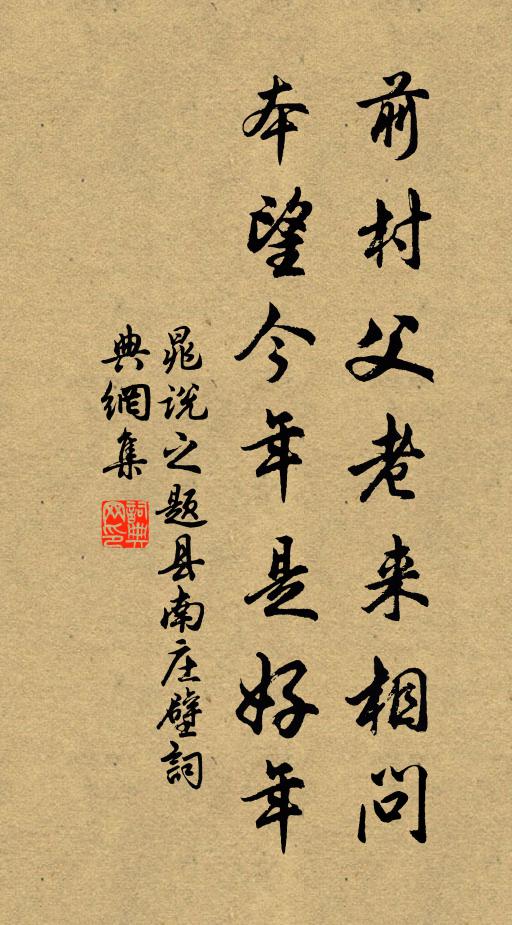 前村父老来相问
本望今年是好年
晁说之题县南庄壁詞
典網集
詞典
网印